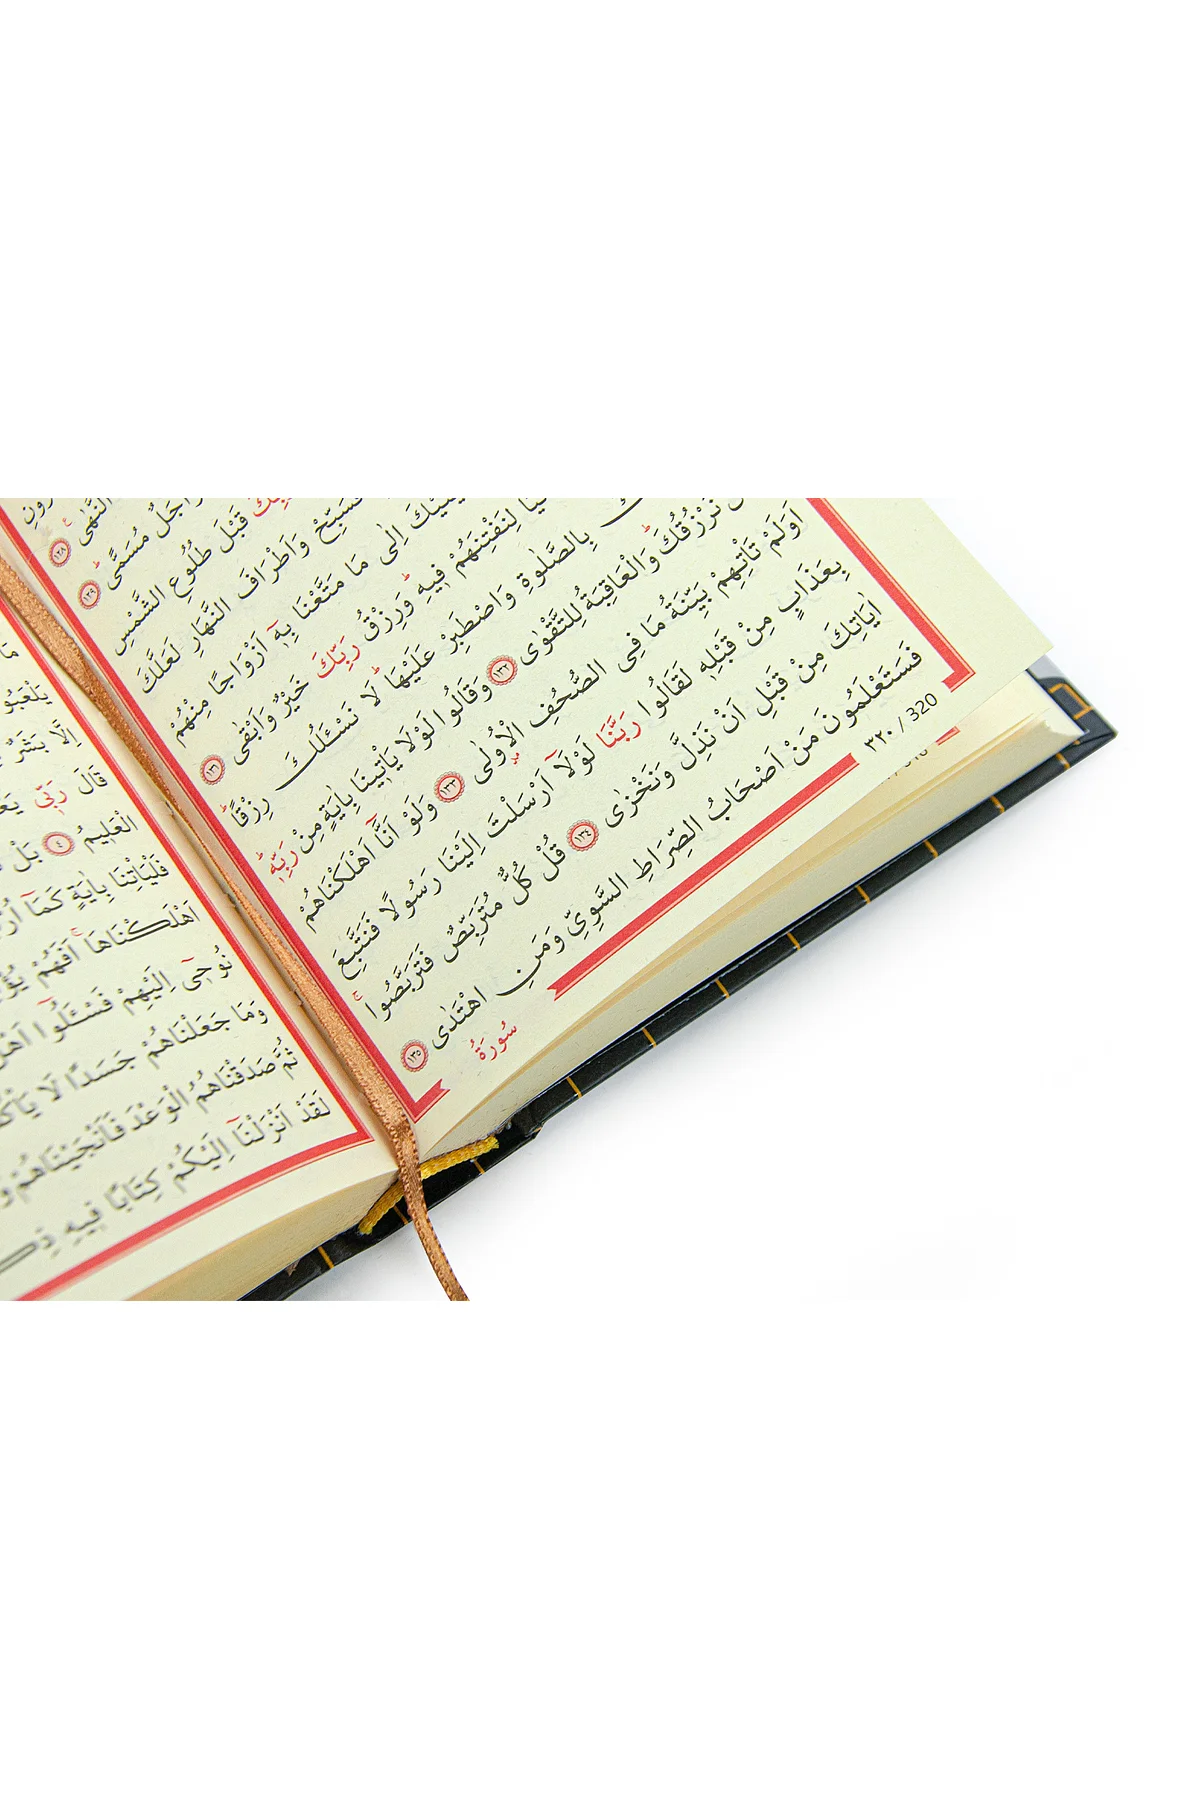 النُّهٰى ١٢٨
وَاَجَلٌ مُسَمًّىۜ ١٢٩
قَبْلَ طُلُوعِ الشَّمْسِ
فَسَبِّحْ وَاَطْرَافَ النَّهَارِ لَعَلَّكَ
اِلٰى مَا مَتَّعْنَا بِه۪ٓ اَزْوَاجًا مِنْهُمْ
لِنَفْتِنَهُمْ ف۪يهِۜ وَرِزْقُ رَبِّكَ خَيْرٌ وَاَبْقٰى ١٣١
بِالصَّلٰوةِ وَاصْطَبِرْ عَلَيْهَاۜ لَا نَسْـَٔلُكَ رِزْقًاۜ
نَرْزُقُكَۜ وَالْعَاقِبَةُ لِلتَّقْوٰى ١٣٢ وَقَالُوا لَوْلَا يَأْت۪ينَا بِاٰيَةٍ مِنْ رَبِّه۪ۜ
اَوَلَمْ تَأْتِهِمْ بَيِّنَةُ مَا فِى الصُّحُفِ الْاُو۫لٰى ١٣٣ وَلَوْ اَنَّٓا اَهْلَكْنَاهُمْ
بِعَذَابٍ مِنْ قَبْلِه۪ لَقَالُوا رَبَّنَا لَوْلَٓا اَرْسَلْتَ اِلَيْنَا رَسُولًا فَنَتَّبِعَ
اٰيَاتِكَ مِنْ قَبْلِ اَنْ نَذِلَّ وَنَخْزٰى ١٣٤ قُلْ كُلٌّ مُتَرَبِّصٌ فَتَرَبَّصُواۚ
فَسَتَعْلَمُونَ مَنْ اَصْحَابُ الصِّرَاطِ السَّوِىِّ وَمَنِ اهْتَدٰى ١٣٥
٣٢٠ / 320
سُورَةُ
مَا
اِلَّا بَشَرٌ
قَالَ رَبّ۪ى
الْعَل۪يمُ ٤ بَلْ
فَلْيَأْتِنَا بِاٰيَةٍ كَمَٓا
اَهْلَكْنَاهَاۚ اَفَهُمْ
نُوح۪ٓى اِلَيْهِمْ فَسْـَٔلُٓوا
وَمَا جَعَلْنَاهُمْ جَسَدًا لَا
ثُمَّ صَدَقْنَاهُمُ الْوَعْدَ فَاَنْجَيْنَاهُمْ
لَقَدْ اَنْزَلْنَٓا اِلَيْكُمْ كِتَابًا ف۪يهِ